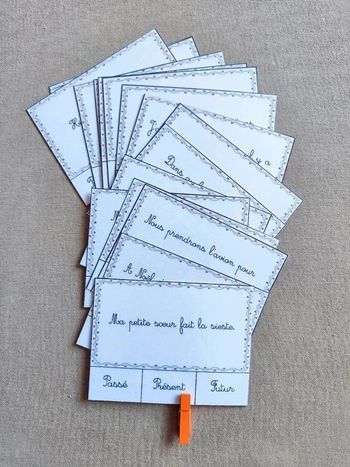 J'
il y a
Dans
Nous prendrons l'avion pour
À Noël
Ma petite sœur fait la sieste.
Passé Présent Futur